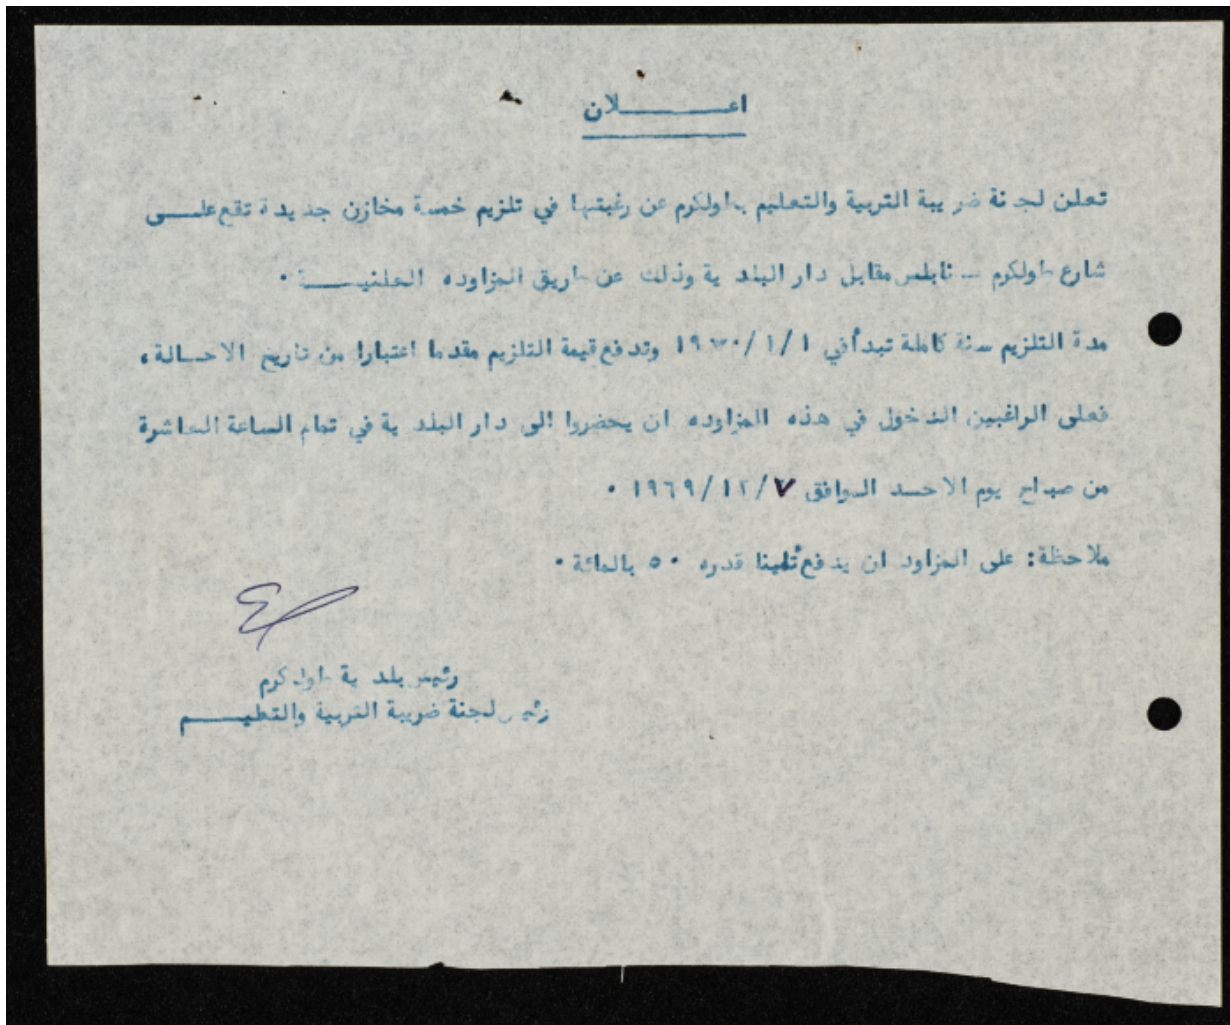 اعـــــــلان
تعلن لجنة ضريبة التربية والتعليم بطولكرم عن رغبتها في تلزيم خمسة مخازن جديدة تقع علـــى
شارع طولكرم ــ نابلس مقابل دار البلدية وذلك عن طريق المزاوده العلنيـــــة ٠
مدة التلزيم سنة كاملة تبدأ في ١/١/١٩٧٠ وتدفع قيمة التلزيم مقدما اعتبارا من تاريخ الاحــالة،
فعلى الراغبين الدخول في هذه المزاوده ان يحضروا الى دار البلدية في تمام الساعة العاشرة
من صباح يوم الاحـد الموافق ٧/١٢/١٩٦٩ ٠
ملاحظة: على المزاود ان يدفع تأمينا قدره ٥٠ بالمائة ٠
رئيس بلدية طولكرم
رئيس لجنة ضريبة التربية والتعليـــــم